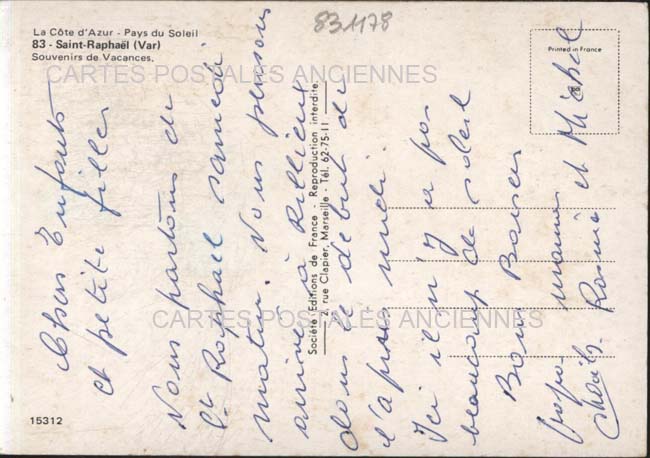 La Côte d'Azur - Pays du Soleil
83 - Saint-Raphaël (Var)
Souvenirs de Vacances.
831178
Printed in France
CARTES POSTALES ANCIENNES
CARTES POSTALES ANCIENNES
Société Editions de France - Reproduction interdite
2, rue Clapier, Marseille - Tél. 62-75-11
15312
Chers Enfants
et petite filles
Nous partons de
St Raphael samedi
matin. Nous pensons
arrivé à Rillieux
dans le debut de
l'apres midi.
Ici il n'y a pas
beaucoup de soleil
Bons Baisers
papa maman
Rosine et Michel